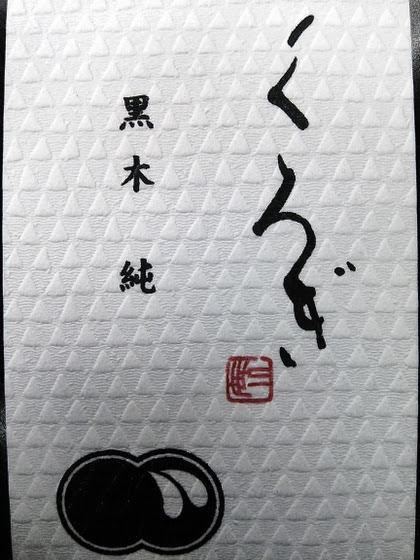 くろぎ
黒木 純